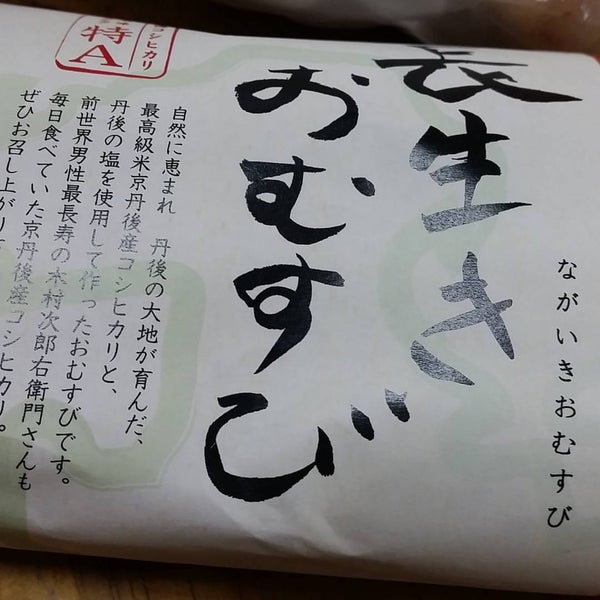 ながいきおむすび
長生き
おむすび
自然に恵まれ 丹後の大地が育んだ、
最高級米京丹後産コシヒカリと、
丹後の塩を使用して作ったおむすびです。
前世界男性最長寿の木村次郎右衛門さんも
毎日食べていた京丹後産コシヒカリ。
ぜひお召し上がり
コシヒカリ
特A